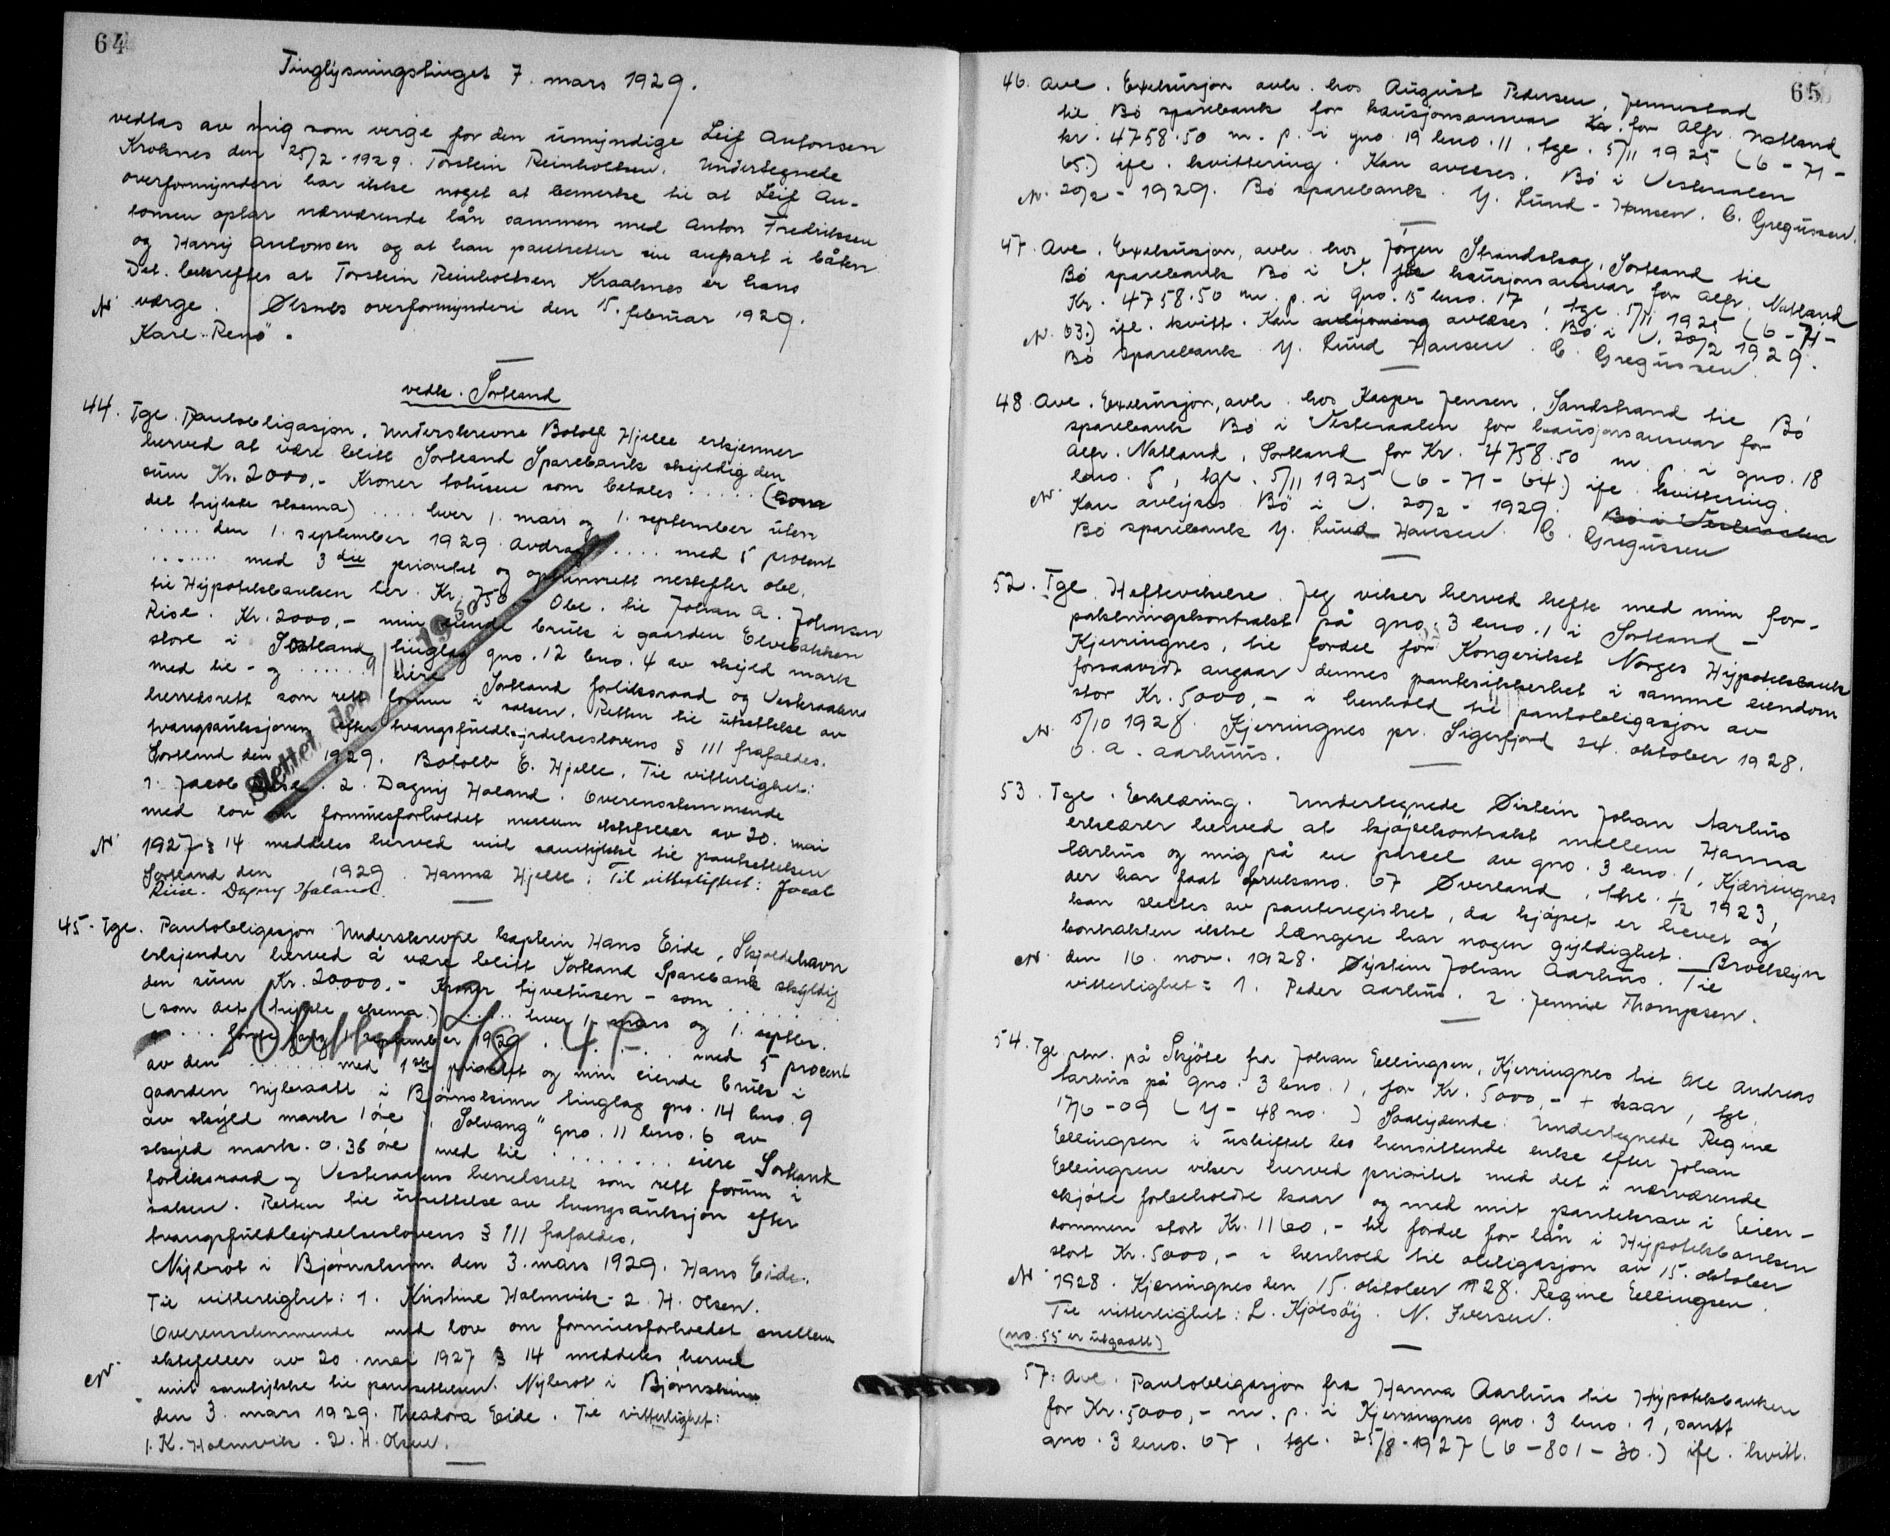 64
Tinglysningstinget 7. mars 1929.
vedtas av mig som verge for den umyndige Leif Antonsen
Kroknes den 25/2-1929. Torstein Reinholtsen. Undertegnede
overformynderi har ikke noget at bemerke til at Leif An-
tonsen optar nærværende lån sammen med Anton Fredriksen
og Harry Antonsen og at han pantsetter sin anpart i båten
Det bekreftes at Torstein Reinholtsen Kraaknes er hans
N verge. Øksnes overformynderi den 15. februar 1929.
Karl Renö.
vedk. Sortland
44. Tgl. Pantobligasjon. Underskrevne Botolf Hjelle erkjenner
herved at være blitt Sortland Sparebank skyldig den
sum Kr. 2000,- Kroner totusen som betales ..... (som
det trykte skema) .... hver 1. mars og 1. september uten
..... den 1. september 1929. Avdrag .... med 5 procent
....... med 3die prioritet og optrinsrett nestefter obl.
til Hypotekbanken her. Kr. 750 - Obl. til Johan A. Johnsen
Rise. Kr. 2000,- min eiende bruk i gaarden Elvebakken
store i Sortland tinglag gno. 12 bno. 4 av skyld mark
med til- og ...... 9 eiere Sortland forliksraad og Vesteraalens
herredsrett som rett forum i saken. Retten til utsettelse av
tvangsauksjonen efter tvangsfuldbyrdelseslovens § 111 frafaldes.
Sortland den 1929. Botolf E. Hjelle. Til vitterlighet:
1. Jacob Riise. 2. Dagny Haland. Overensstemmende
med lov om formuesforholdet mellem ektefeller av 20. mai
N 1927 § 14 meddeles herved mit samtykke til pantsettelsen
Sortland den 1929. Hanna Hjelle. Til vitterlighet: Jacob
Riise. Dagny Haland
Slettet den 19
45. Tgl. Pantobligasjon Underskrevne kaptein Hans Eide, Skjoldehavn
erkjender herved å være blitt Sortland Sparebank skyldig
den sum Kr. 20000,- Kroner tyvetusen - som ........
(som det trykte skema) ...... hver 1. mars og 1. septbr.
.... første gang 1. september 1929 ........ med 5 procent
av den ........ med 1ste prioritet og min eiende bruk i
gaarden Nybraatt i Bjørnskinn tinglag gno. 14 bno. 9
av skyld mark 1 öre, "Solvang" gno. 11 bno. 6 av
skyld mark. 0,36 öre med til ........ eiere Sortland
forliksraad og Vesteraalens herredsrett som rett forum i
saken. Retten til utsettelse av tvangsauksjon efter
tvangsfuldbyrdelseslovens § 111 frafaldes.
Nybrot i Bjørnskinn den 3. mars 1929. Hans Eide.
Til vitterlighet: 1. Kristine Holmvik - 2. H. Olsen.
Overensstemmende med lov om formuesforholdet mellem
ektefeller av 20. mai 1927 § 14 meddeles herved
N mit samtykke til pantsettelsen. Nybrot i Bjørnskinn
den 3. mars 1929. Theodora Eide. Til vitterlighet:
1. K. Holmvik. 2. H. Olsen.
65
46. Avl. Exekusjon avh. hos August Pedersen, Jennestad
til Bö sparebank for kausjonsansvar Kr. for Alfr. Natland
kr. 4758.50 m. p. i gno. 19 bno. 11, tgl. 5/11 1925 (6-71-
65) ifl. kvittering. Kan avlæses. Bö i Vesteraalen
N. 20/2-1929. Bö sparebank. Y. Lund-Hansen. C. Gregussen.
47. Avl. Exekusjon, avh. hos Jörgen Strandskog, Sortland til
Bö sparebank Bö i V. kausjonsansvar for Alfr. Natland
Kr. 4758.50 m. p. i gno. 15 bno. 17, tgl. 5/11 1925 (6-71-
N. 63.) ifl. kvitt. Kan avlysning avlæses. Bö i V. 20/2 1929.
Bö sparebank Y. Lund Hansen. C. Gregussen.
48. Avl. Exekusjon, avh. hos Kasper Jensen, Sandstrand til Bö
sparebank Bö i Vesteraalen for kausjonsansvar for
Alfr. Natland, Sortland for Kr. 4758.50 m. p. i gno. 18
bno. 5, tgl. 5/11 1925 (6-71-64.) ifl. kvittering.
N. Kan avlyses Bö i V. 20/2-1929. Bö i Vesteraalen
Bö sparebank Y. Lund Hansen. C. Gregussen
52. Tgl. Heftevikelse. Jeg viker herved hefte med min for-
paktningskontrakt på gno. 3 bno. 1 i Sortland -
Kjerringnes, til fordel for Kongeriket Norges Hypotekbank
forsaavidt angaar dennes pantsikkerhet i samme eiendom
stor Kr. 5000,- i henhold til pantobligasjon av
N. 5/10 1928. Kjerringnes pr. Sigerfjord 24. oktober 1928.
O. A. Aarhuus.
53. Tgl. Erklæring. Undertegnede Øistein Johan Aarhus
erklærer herved at kjöpekontrakt mellem Hanna
Aarhus og mig på en parcel av gno. 3 bno. 1, Kjærringnes
der har faat bruksno. 67 Øverland, thl. 1/12 1923,
kan slettes av panteregistret, da kjöpet er hevet og
kontrakten ikke længere har nogen gyldighet. Broeklyn
N. den 16. nov. 1928. Øystein Johan Aarhus. Til
vitterlighet: 1. Peder Aarhus. 2. Jennie Thompsen.
54. Tgl. på Skjöte fra Johan Ellingsen, Kjerringnes til Ole Andreas
Aarhus på gno. 3 bno. 1, for Kr. 5000,- + kaar, tgl.
17/6-09 (Y-48 no. ) Saalydende: Undertegnede Regine
Ellingsen i uskiftet bo hensittende enke efter Johan
Ellingsen viker herved prioritet med det i nærværende
skjöte forbeholdte kaar og med mit pantekrav i Eien-
dommen stort Kr. 1160,- til fordel for lån i Hypotekbanken
stort Kr. 5000,- i henhold til obligasjon av 15. oktober
N 1928. Kjerringnes den 15. oktober 1928. Regine Ellingsen.
Til vitterlighet: L. Kjölsöy. N. Iversen.
(no. 55 er utgaatt)
57. Avl. Pantobligasjon fra Hanna Aarhus til Hypotekbanken
for Kr. 5000,- m. p. i Kjerringnes gno. 3 bno. 1, samt
gno. 3 bno. 67, tgl. 25/8-1927 (6-801-30.) ifl. kvitt.